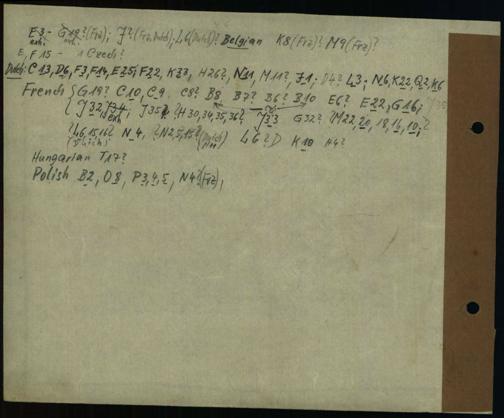 E3- G19?(Frz); J?(Frz, Dutch), L6(Dutch)? Belgian K8(Frz)? M9(Frz)?
E, F15 - 1 Czech?
Dutch: C13, D6, F3, F14, E25, F22, K32, H26?, N11, M11?, J1, D4? L3; N6, K22, Q2, K6
French (G19? C10, C9 C8? B8 B7? B6? B10 E6? E22, G16,
J32, J34, J35 ?H30, 34, 35, 36? J33 G32? M22, 20, 18, 16, 10,?
?L6, 15, 16? N4, ?N25, 15? (Dutch) L6?D K10 H4?
(Dutch)
Hungarian T17?
Polish B2, D8, P3, 4, 5, N4?(Frz),